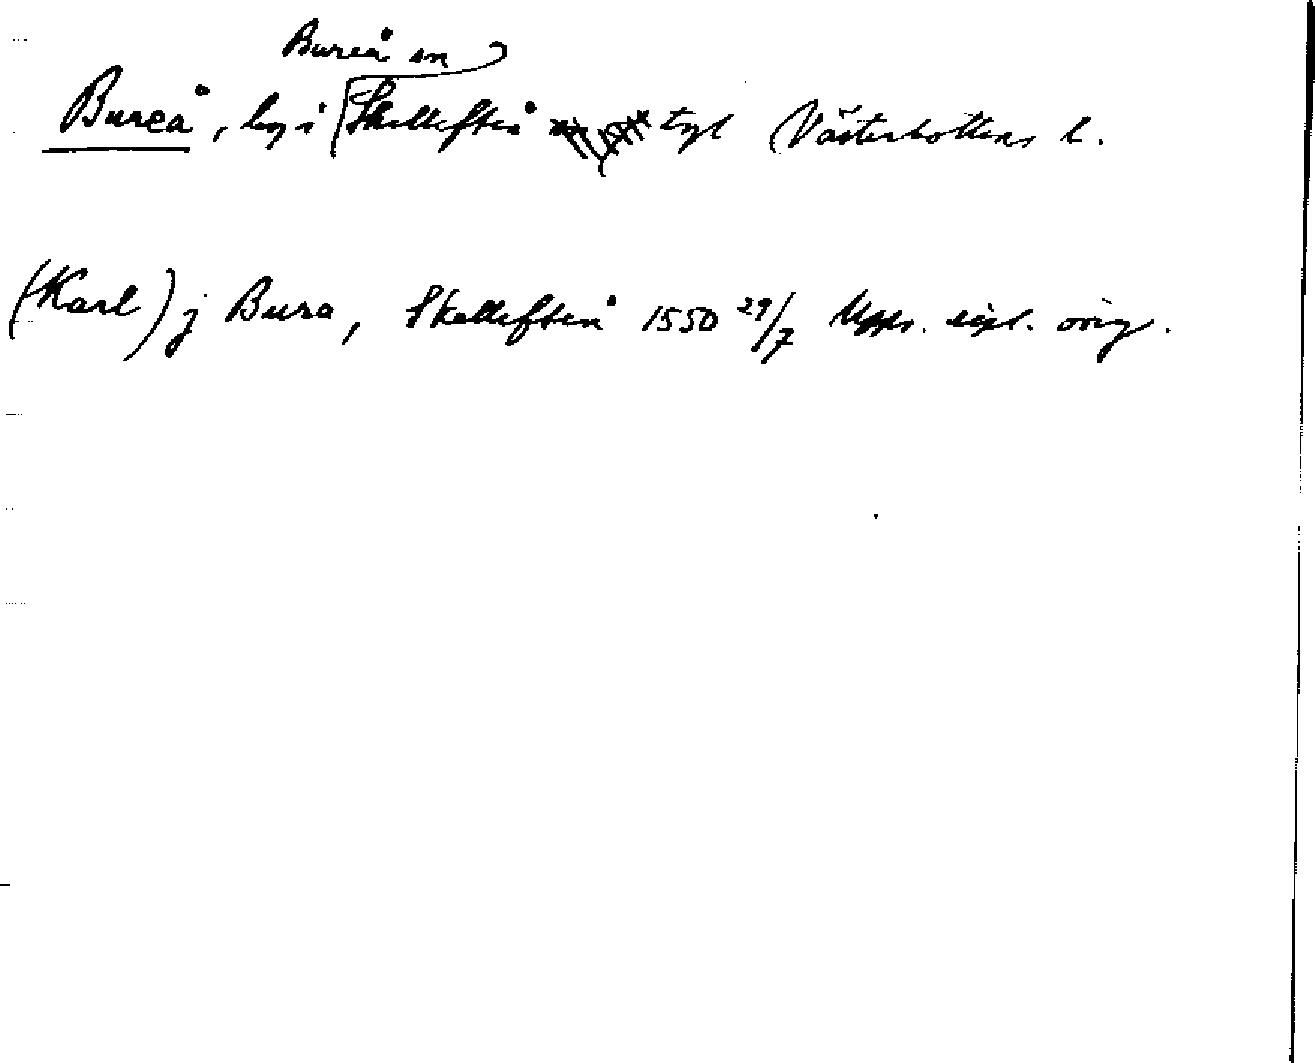 Bureå sn
Bureå, by i Skellefteå tgl Västerbottens l.
(Karl) j Bura, Skellefteå 1550 29/7 Upps. orig.